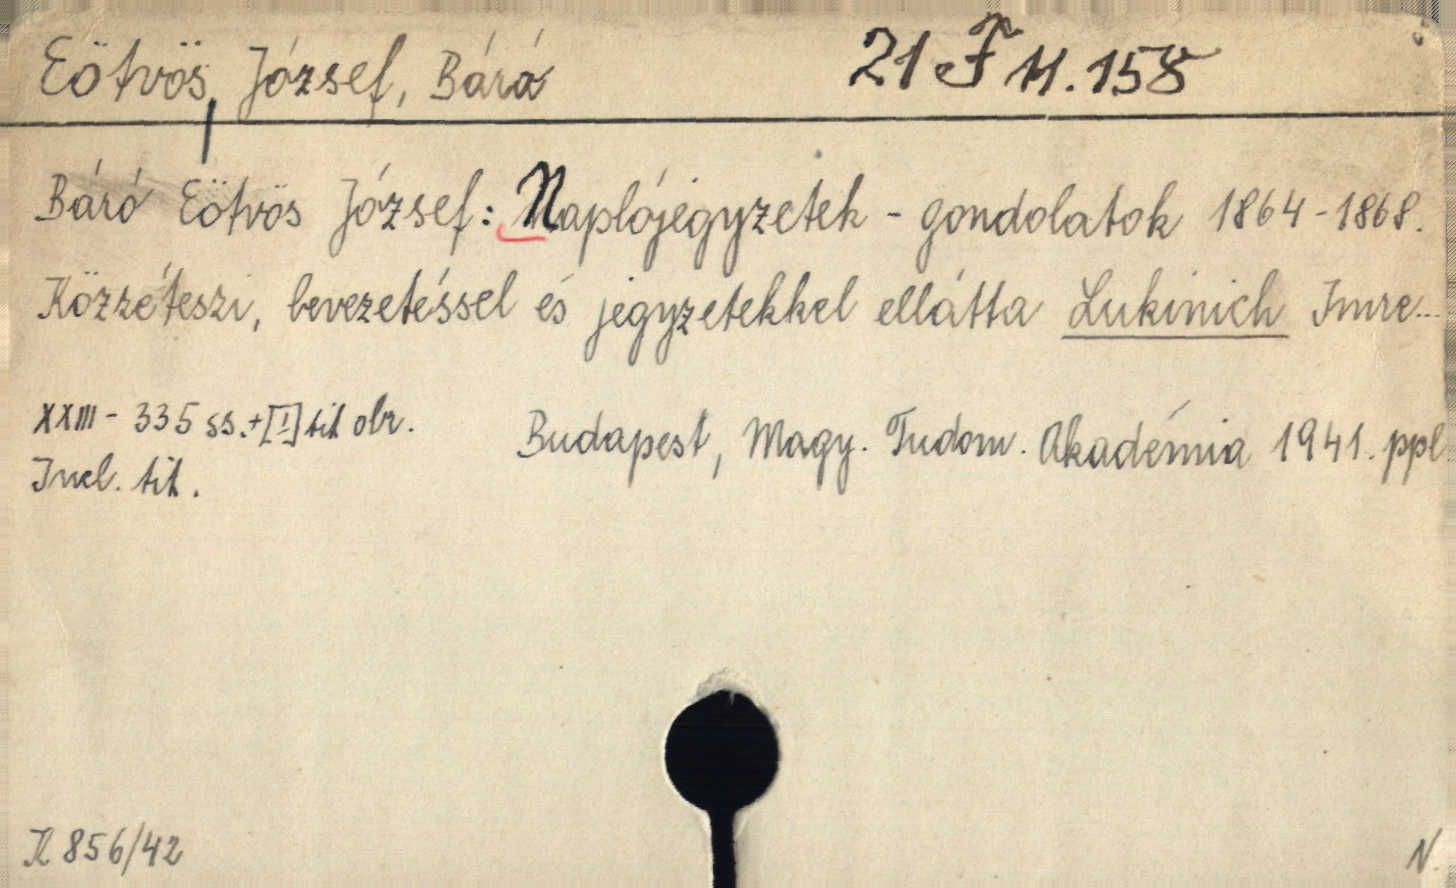 Eötvös, József, Báró 21 F 11.158
Báró Eötvös József: Naplójegyzetek - gondolatok 1864-1868.
Közzéteszi, bevezetéssel és jegyzetekkel ellátta Lukinich Imre...
XXIII - 335 ss. + [I] tit obr.
Budapest, Magy. Tudom. Akadémia 1941. ppl
Incl. tit.
K 856/42
N.